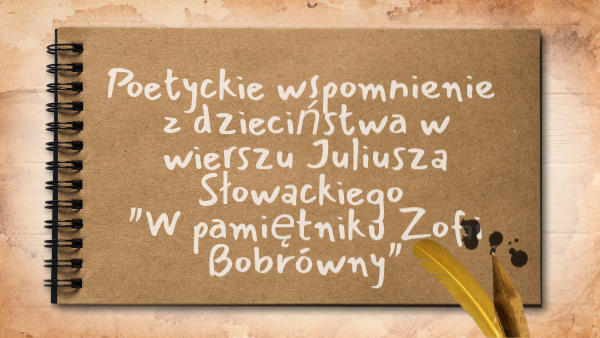 Poetyckie wspomnienie
z dzieciństwa w
wierszu Juliusza
Słowackiego
"W pamiętniku Zofi
Bobrówny"